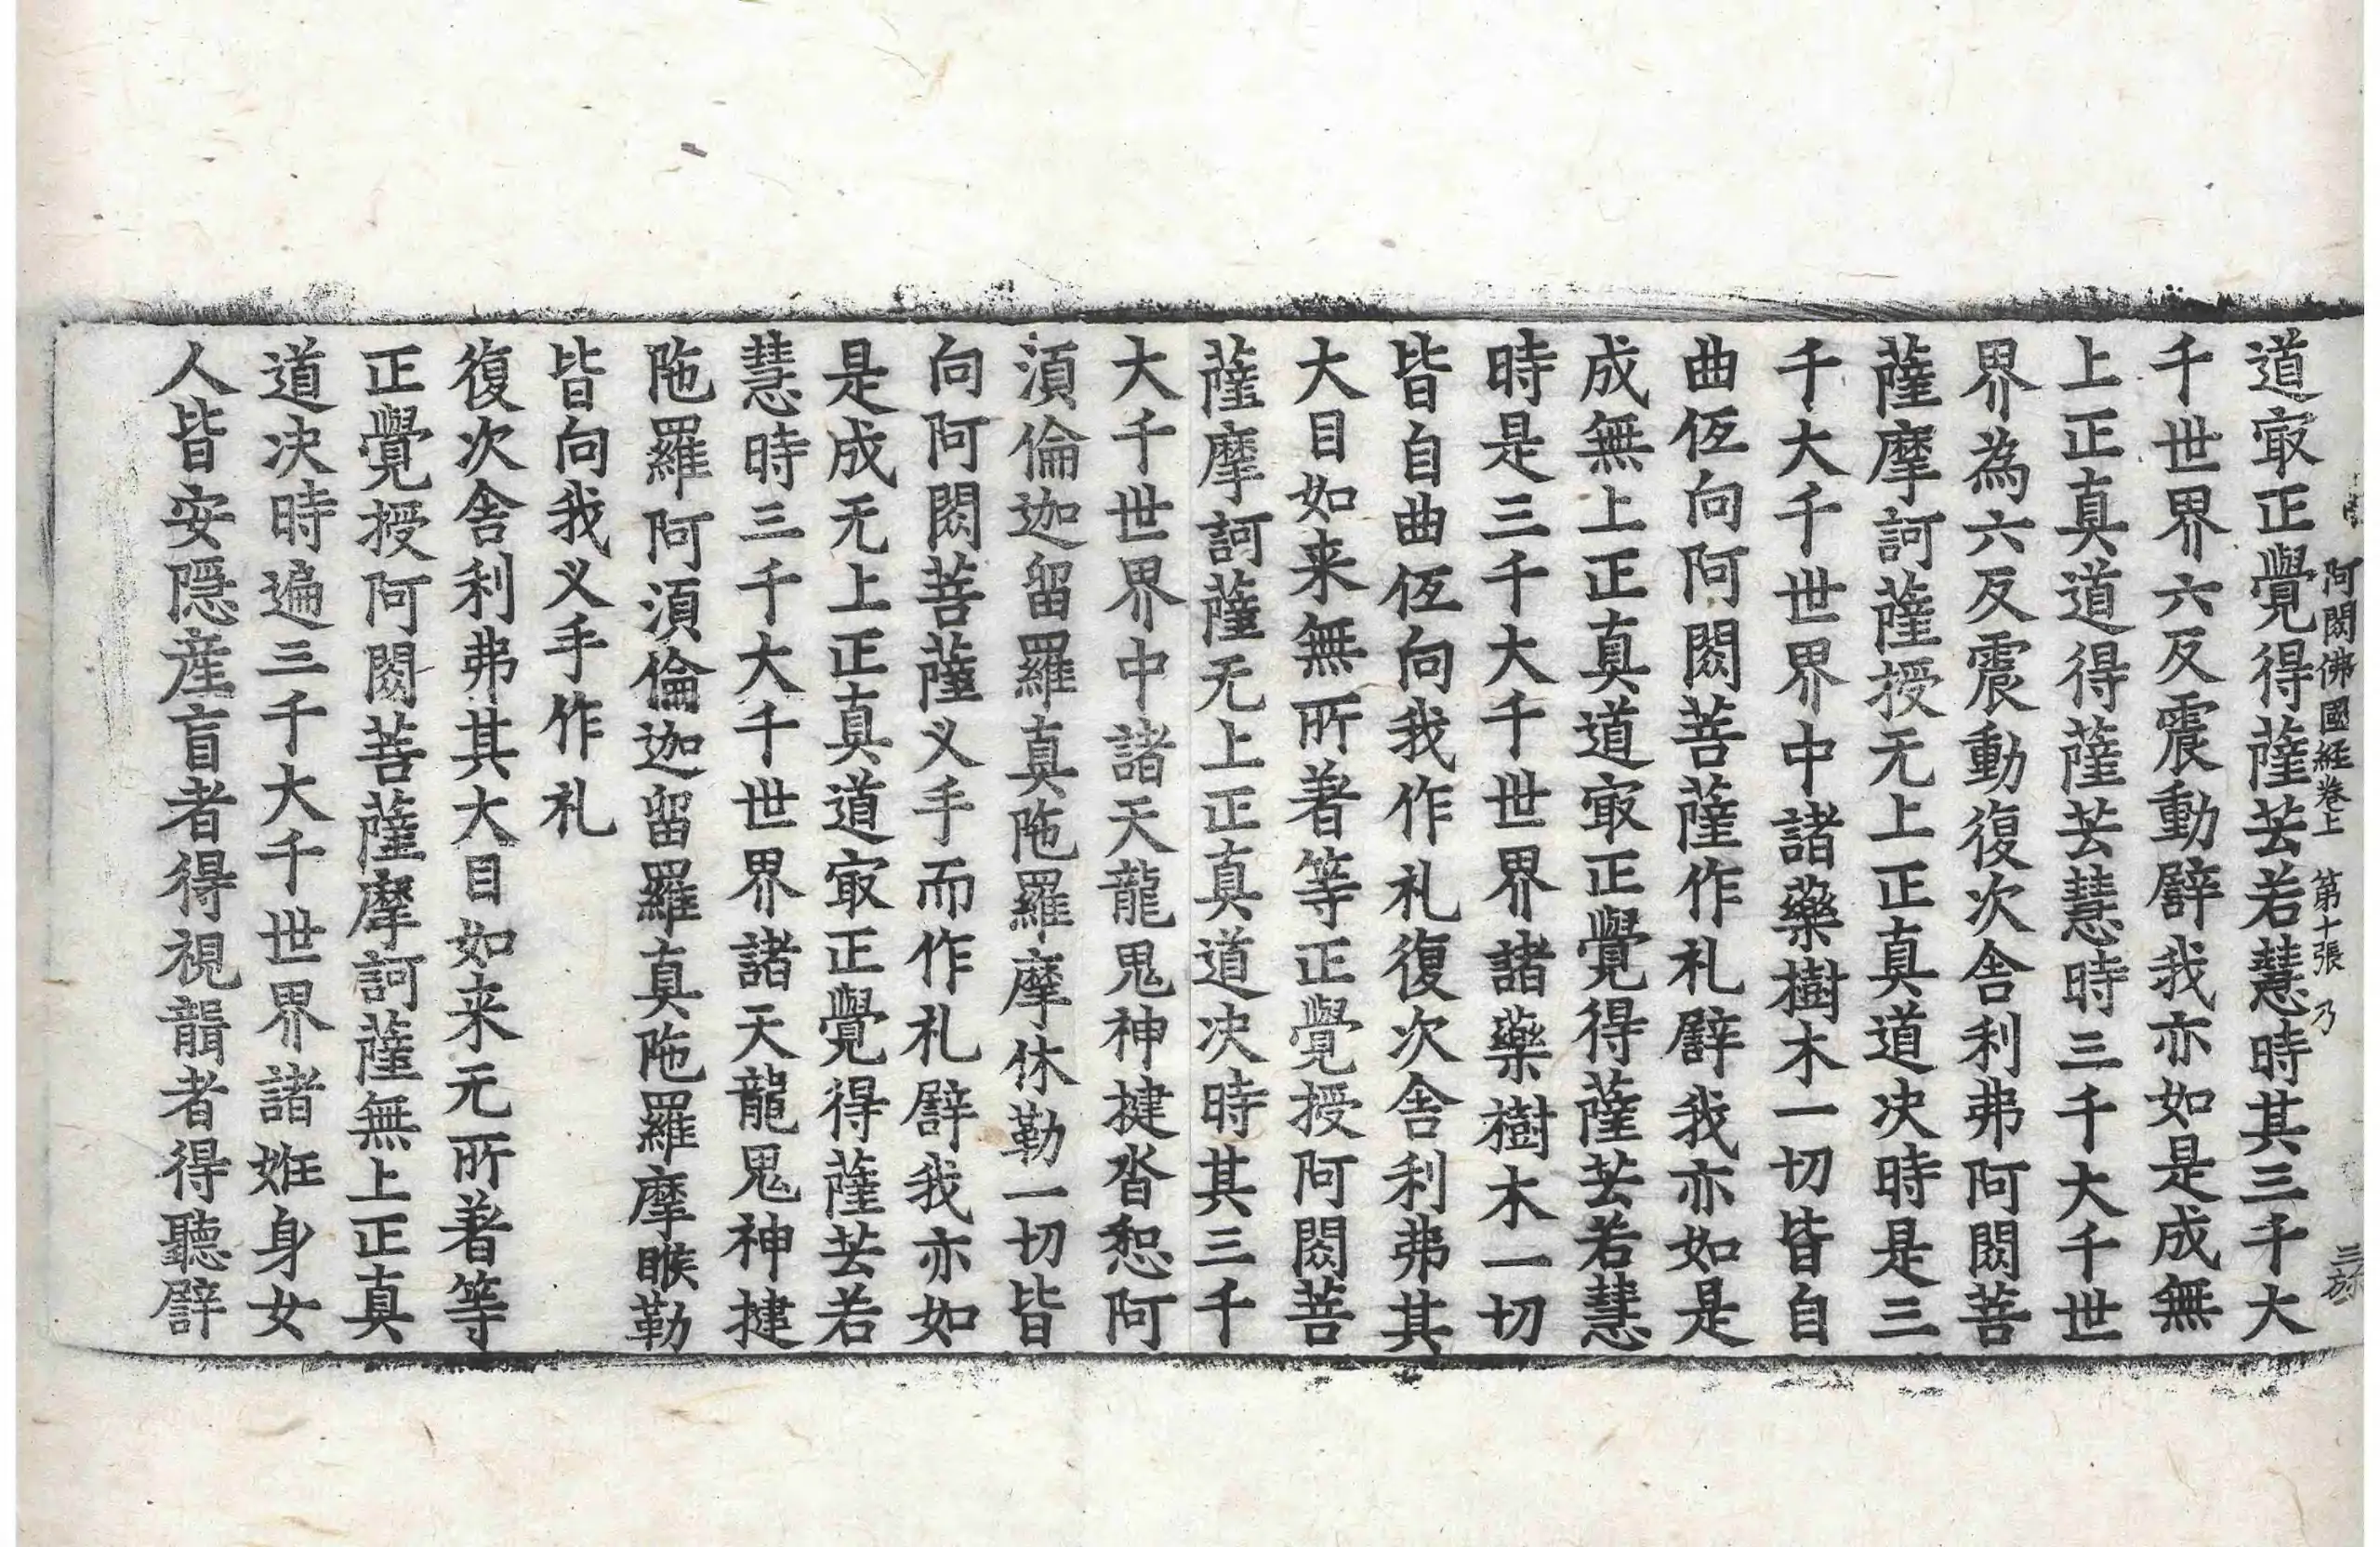 阿閦佛國経卷上　第十張　乃
道㝡正覺得薩芸若慧時其三千大
千世界六反震動譬我亦如是成無
上正真道得薩芸慧時三千大千世
界為六反震動復次舎利弗阿閦菩
薩摩訶薩授无上正真道决時是三
千大千世界中諸藥樹木一切皆自
曲𠈉向阿閦菩薩作礼譬我亦如是
成無上正真道㝡正覺得薩芸若慧
時是三千大千世界諸藥樹木一切
皆自曲𠈉向我作礼復次舎利弗其
大目如来無所著等正覺授阿閦菩
薩摩訶薩无上正真道决時其三千
大千世界中諸天龍鬼神揵沓惒阿
湏倫迦留羅真陁羅摩休勒一切皆
向阿閦菩薩义手而作礼譬我亦如
是成无上正真道㝡正覺得薩芸若
慧時三千大千世界諸天龍鬼神揵
陁羅阿湏倫迦留羅真陁羅摩睺勒
皆向我义手作礼
復次舎利弗其大目如来无所著等
正覺授阿閦菩薩摩訶薩無上正真
道决時遍三千大千世界諸姙身女
人皆安隠産盲者得視聾者得聽譬